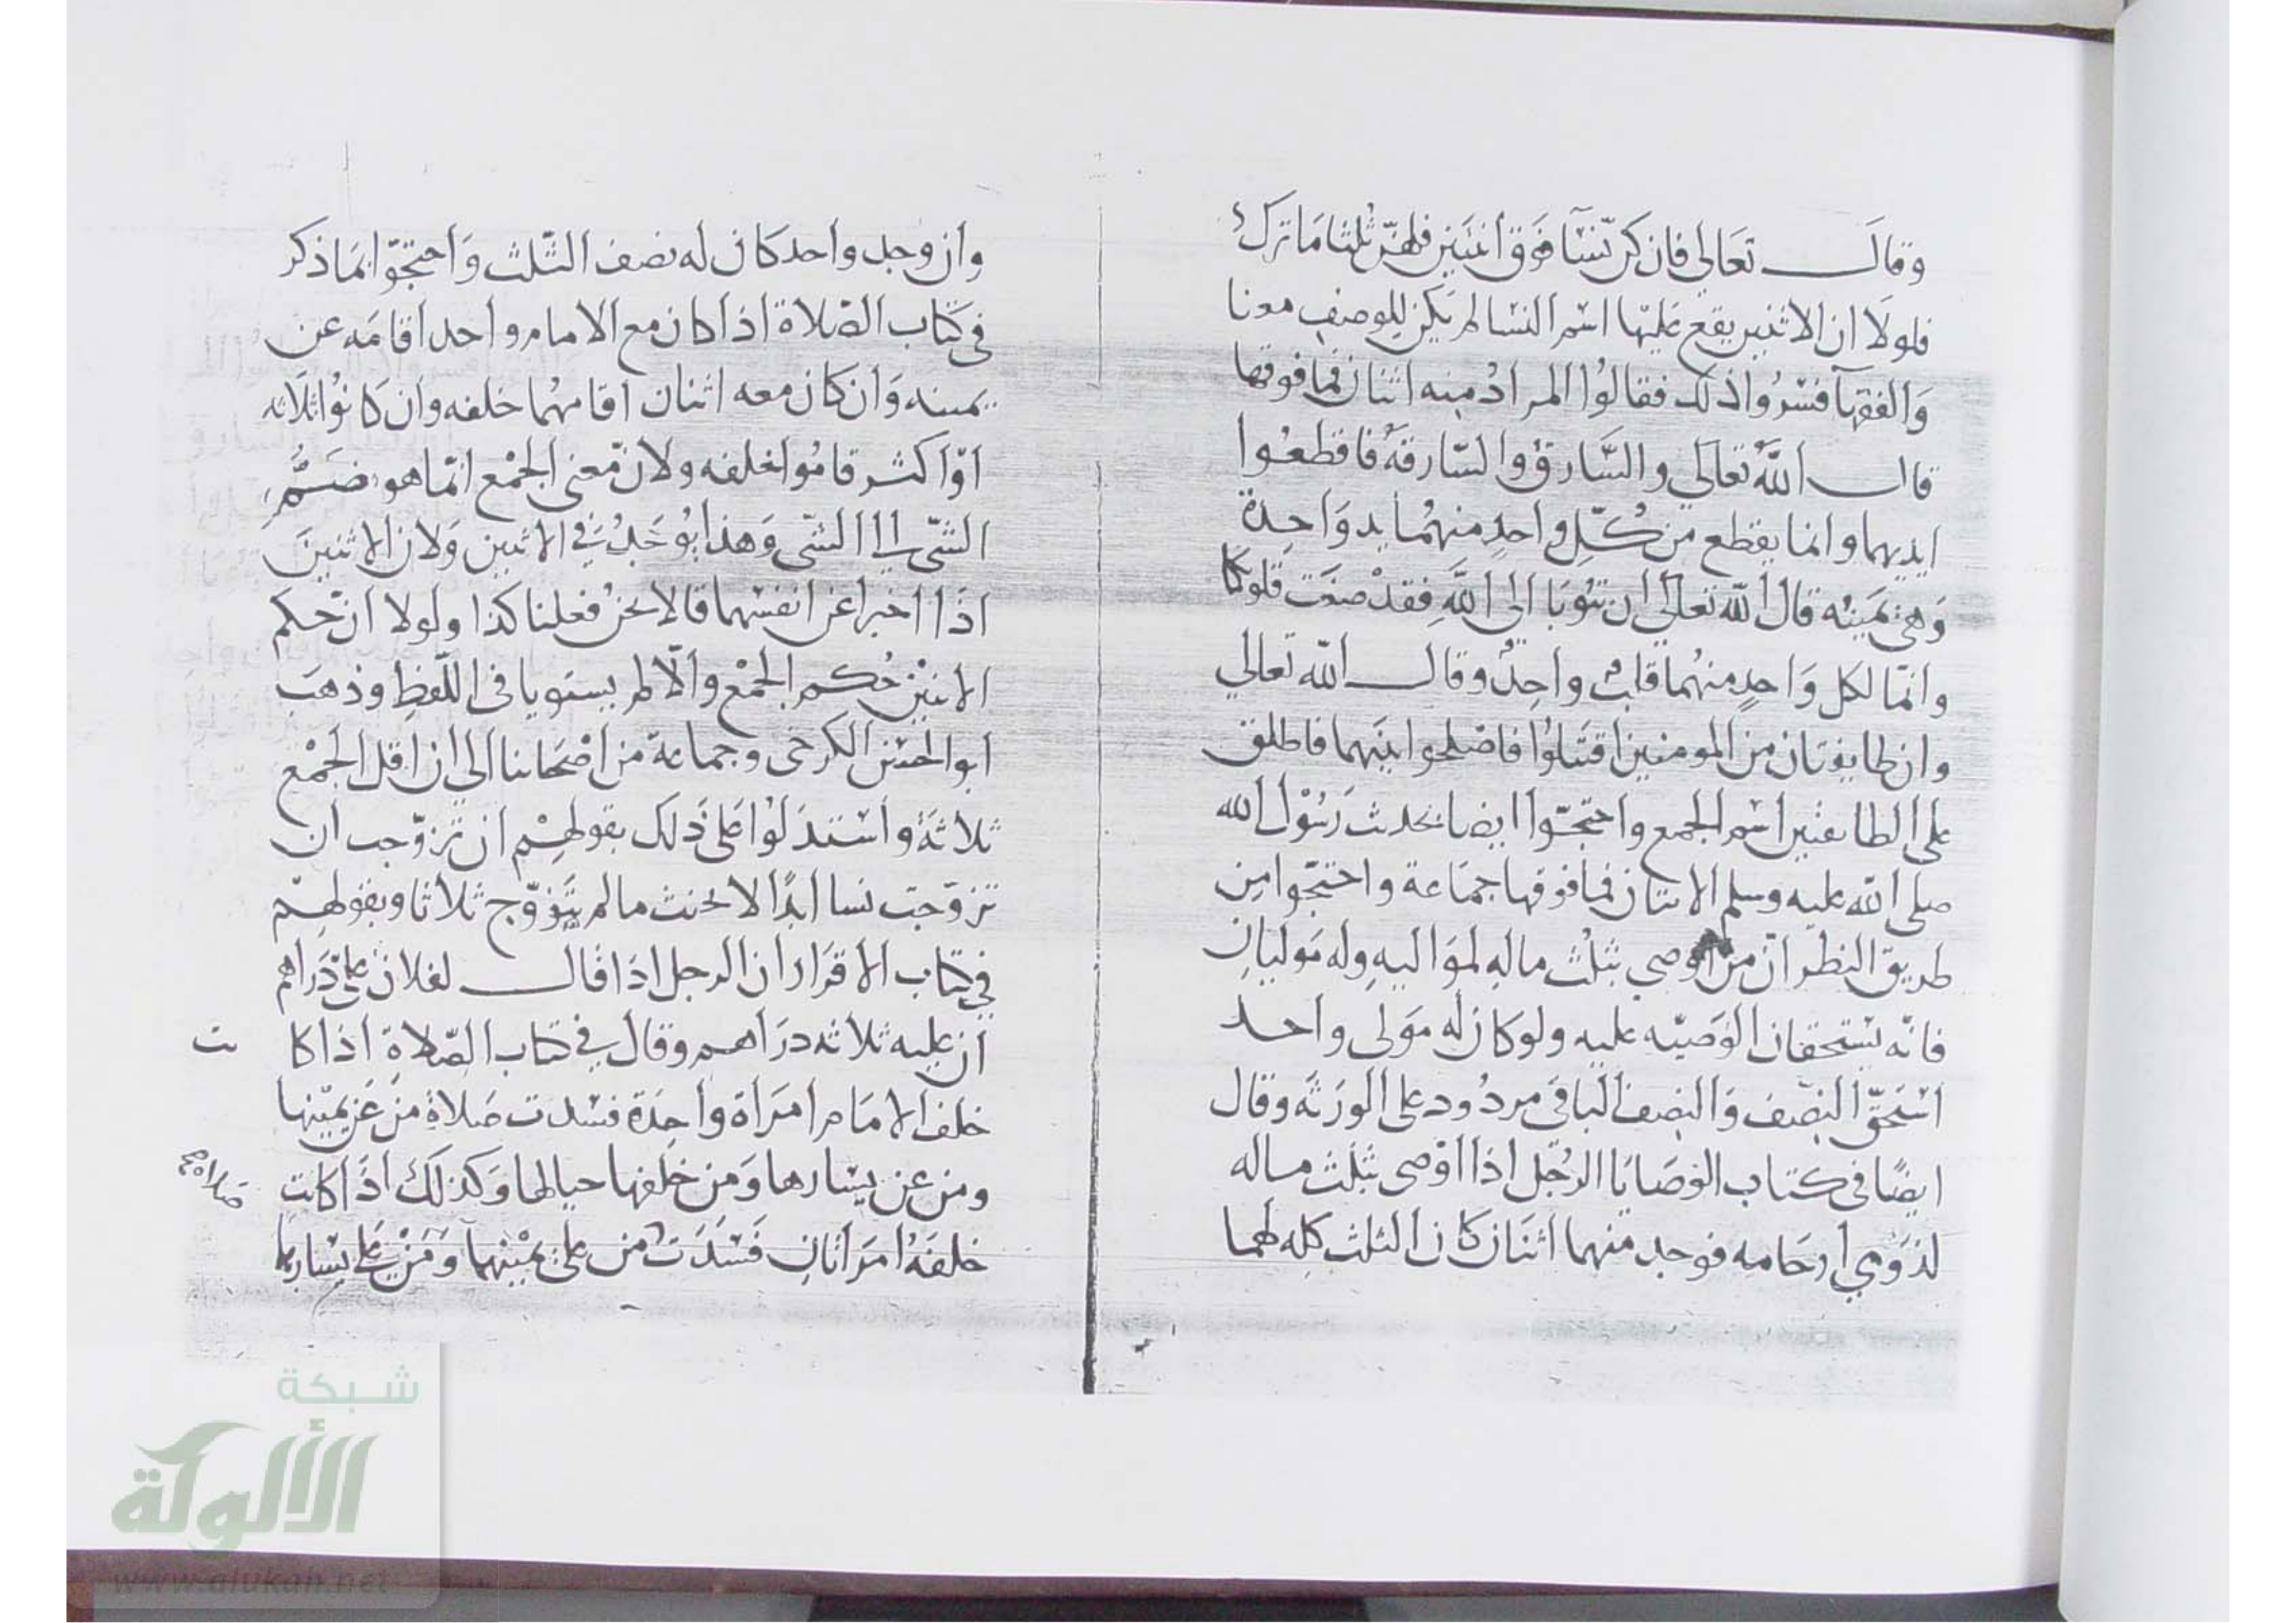 وقال تعالي فان كن نسآ فوق اثنتين فلهن ثلثا ما ترك
فلولا ان الاثنين يقع عليها اسم النسا لم يكن للوصف معنا
والفقهآ فسروا ذلك فقالوا المراد منه اثنان فما فوقها
قال الله تعالي والسارق والسارقة فاقطعوا
ايديهما وانما يقطع من كل واحد منهما يد واحدة
وهي يمينه قال الله تعالي ان تتوبا الي الله فقد صغت قلوبكما
وانما لكل واحد منهما قلب واحد وقال الله تعالي
وان طايفتان من المومنين اقتتلوا فاصلحوا بينهما فاطلق
علي الطائفتين اسم الجمع واحتجوا ايضا بحديث رسول الله
صلي الله عليه وسلم الاثنان فما فوقها جماعة واحتجوا من
طريق النظر ان من اوصي بثلث ماله لمواليه وله موليان
فانه يستحقان الوصيه عليه ولو كان له مولى واحد
استحق النصف والنصف الباقي مردود على الورثة وقال
ايضا في كتاب الوصايا الرجل اذا اوصى بثلث ماله
لذوي ارحامه فوجد منهما اثنان كان الثلث كله لهما
وان وجد واحد كان له نصف الثلث واحتجوا بما ذكر
في كتاب الصلاة اذا كان مع الامام واحد اقامه عن
يمينه وان كان معه اثنان اقامهما خلفه وان كانوا ثلاثه
او اكثر قاموا خلفه ولان معنى الجمع انما هو ضم
الشي الي الشي وهذا يوجد في الاثنين ولان الاثنين
اذا اخبرا عن انفسهما قالا نحن فعلنا كذا ولولا ان حكم
الاثنين حكم الجمع والا لم يستويا في اللفظ وذهب
ابو الحسن الكرخى وجماعة من اصحابنا الي ان اقل الجمع
ثلاثة واستدلوا على ذلك بقولهم ان تزوجت ان
تزوجت نسا ابدا لا يحنث ما لم يتزوج ثلاثا وبقولهم
في كتاب الاقرار ان الرجل اذا قال لفلان علي دراهم
ان عليه ثلاثه دراهم وقال في كتاب الصلاة اذا كا نت
خلف الامام امراة واحدة فسدت صلاة من عن يمينها
ومن عن يسارها ومن خلفها حيالها وكذلك اذا كانت
صلاة
خلفه امراتان فسدت من على يمينهما ومن على يسارهما
شبكة
الألوكة
www.alukah.net